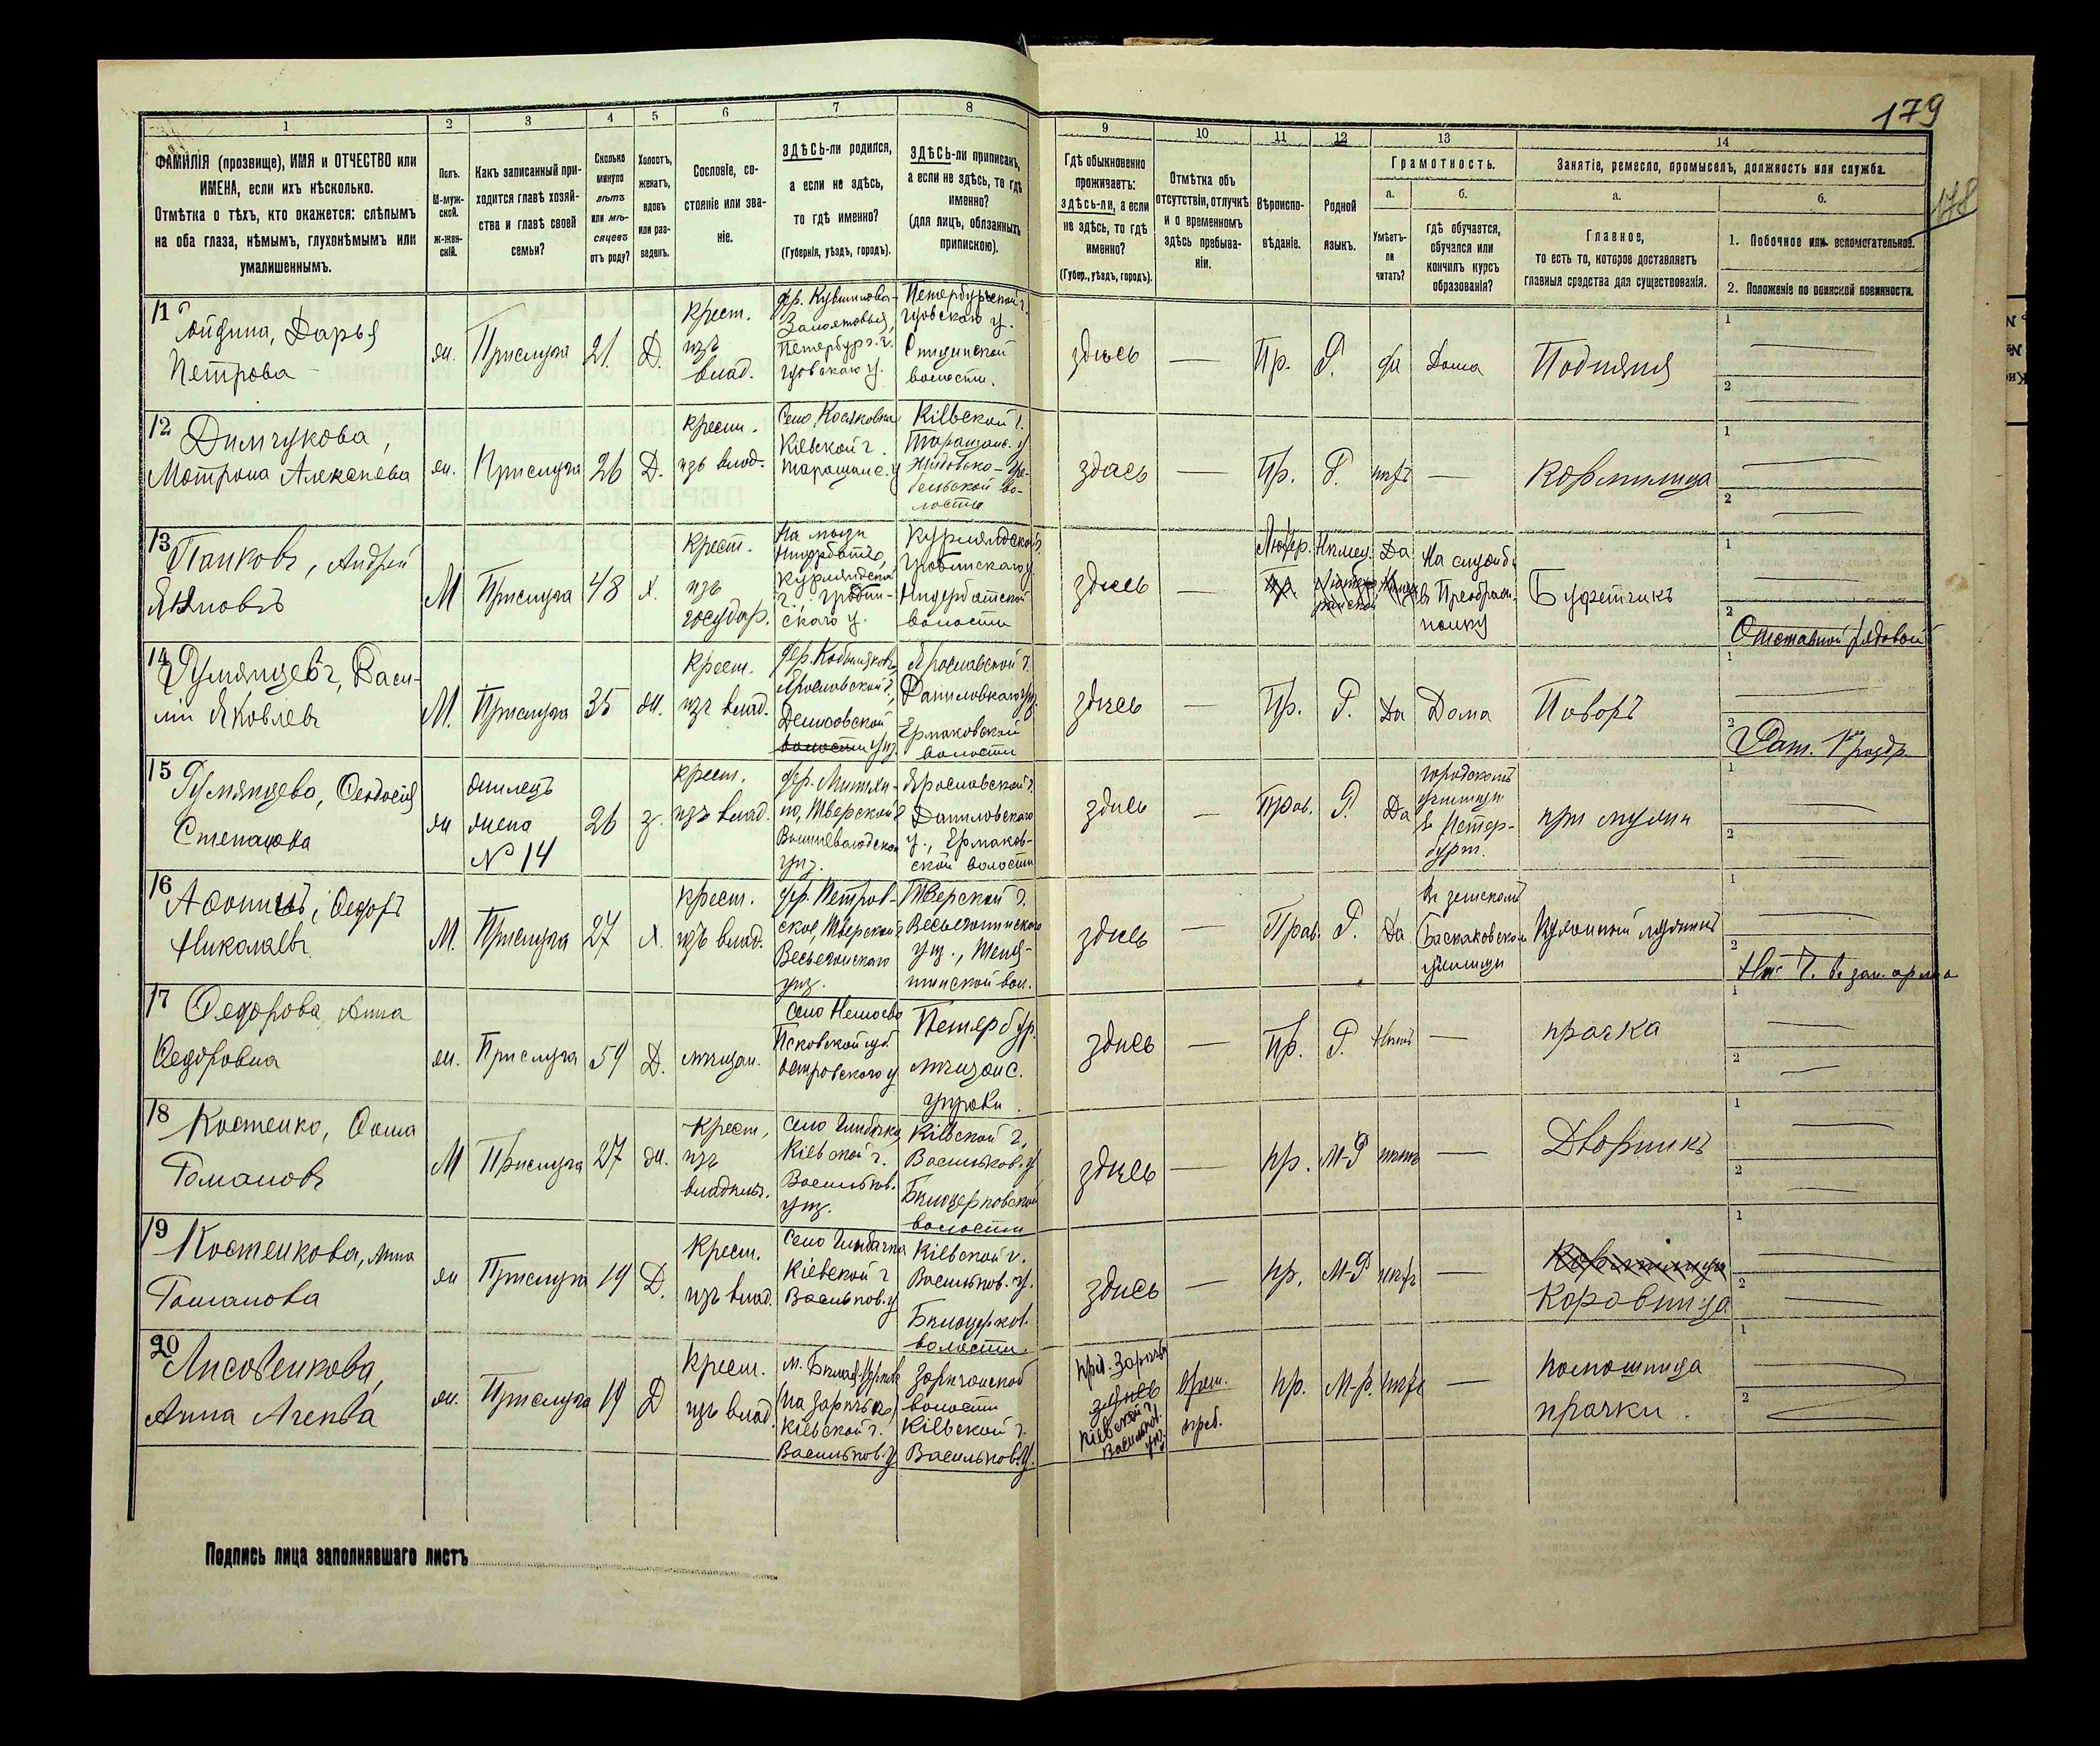 179
178
1
2
3
4
5
6
7
8
9
10
11
12
13
14
ФАМИЛІЯ (прозвище), ИМЯ и ОТЧЕСТВО или
ИМЕНА, если ихъ нѣсколько.
Отмѣтка о тѣхъ, кто окажется: слѣпымъ
на оба глаза, нѣмымъ, глухонѣмымъ или
умалишеннымъ.
Полъ.
М-муж-
ской.
Ж-жен-
скій.
Какъ записанный при-
ходится главѣ хозяй-
ства и главѣ своей
семьи?
Сколько
минуло
лѣтъ
или мѣ-
сяцевъ
отъ роду?
Холостъ,
женатъ,
вдовъ
или раз-
веденъ.
Сословіе, со-
стояніе или зва-
ніе.
ЗДѢСЬ-ли родился,
а если не здѣсь,
то гдѣ именно?
(Губернія, уѣздъ, городъ).
ЗДѢСЬ-ли приписанъ,
а если не здѣсь, то гдѣ
именно?
(для лицъ, обязанныхъ
припискою).
Гдѣ обыкновенно
проживаетъ:
ЗДѢСЬ-ли, а если
не здѣсь, то гдѣ
именно?
(Губер., уѣздъ, городъ).
Отмѣтка объ
отсутствіи, отлучкѣ
и о временномъ
здѣсь пребыва-
ніи.
Вѣроиспо-
вѣданіе.
Родной
языкъ.
Грамотность.
а.
Умѣетъ-
ли
читать?
б.
гдѣ обучается,
обучался или
кончилъ курсъ
образованія?
Занятіе, ремесло, промыселъ, должность или служба.
а.
Главное,
то есть то, которое доставляетъ
главныя средства для существованія.
б.
1. Побочное или вспомогательное.
2. Положеніе по воинской повинности.
11
Дарья
Петрова
ж.
Прислуга
21.
Д.
крест.
изъ
влад.
Петербург. г.
Петербургской г.
волости.
здѣсь
—
Пр.
Р.
да
дома
Подняня
1
2
12
Димчукова,
Матрона Алексѣева
ж.
Прислуга
26
Д.
крест.
изъ влад.
Село Косяковка
Кіевской г.
Таращанс. у
Кіевской г.
Таращанс. у
Жидовско-Гре-
бельской во-
лости
здѣсь
—
Пр.
Р.
нѣтъ
—
кормилица
1
2
13
Панковъ, Андрей
М
Прислуга
48
х.
крест.
изъ
государ.
На мызѣ
Нидербартѣ,
Курляндской
г., Гробин-
скаго у.
Курляндской г.
Гробинскаго у
Нидербатской
волости
здѣсь
—
Лютер.
Нѣмец.
Да
На службѣ
въ Преображ.
полку
Буфетчикъ
1
2
Отставной рядовой
14
Румянцевъ, Васи-
лій Яковлевъ
М.
Прислуга
35
ж.
крест.
изъ влад.
Ярославской г.,
Даниловской
волости уѣз.
Ярославской г.
Даниловскаго уѣз.
Ермаковской
волости
здѣсь
—
Пр.
Р.
Да
Дома
Поваръ
1
2
Рат. 1го разр.
15
Румянцева, Феодосія
Степанова
ж
жилецъ
жена
№ 14
26
з.
крест.
изъ влад.
Вышневолодскаго
уѣз.
Ярославской г.
Даниловскаго
у., Ермаков-
ской волости
здѣсь
—
Прав.
Р.
Да
городскомъ
училищѣ
въ Петер-
бургѣ.
при мужѣ
1
2
16
Федоръ
Николаевъ
М.
Прислуга
27
х.
крест.
изъ влад.
дер. Петров-
ское, Тверской г
Весьегонскаго
уѣз.
Тверской г.
Весьегонскаго
здѣсь
—
Прав.
Р.
Да
Въ земскомъ
Баскаковскомъ
училищѣ
Кухонный мужикъ
1
2
17
Федорова Анна
Федоровна
ж.
Прислуга
59
Д.
мѣщан.
Псковской губ
Островского у
Петербур.
мѣщанс.
управы.
здѣсь
—
Пр.
Р.
Нѣтъ
—
прачка
1
2
18
Костенко, Фома
Романовъ
М
Прислуга
27
ж.
крест.,
изъ
владѣльч.
Село Глыбачка
Кіевской г.
Васильков.
уѣз.
Кіевской г.
Васильков. у
Бѣлоцерковской
волости
здѣсь
—
пр.
М-Р
нѣтъ
—
Дворникъ
1
2
19
Костенкова, Анна
Романова
ж
Прислуга
19
Д.
крест.
изъ влад.
Село Глыбачка
Кіевской г
Васильков. у
Кіевской г.
Васильков. у.
Бѣлоцерков.
волости.
здѣсь
—
пр.
М-Р
нѣтъ
—
Кормилица
Коровница
1
2
20
Лисовенкова,
Анна
ж.
Прислуга
19
Д
крест.
изъ влад.
м. Бѣлая-Церковь
(на Зарѣчьѣ)
Кіевской г.
Васильков. у
Зарѣчанской
волости
Кіевской г.
Васильков. у.
здѣсь
Кіевской г.
Васильков.
уѣз.
врем.
преб.
пр.
М-р.
нѣтъ
—
помошница
прачки.
1
2
Подпись лица заполнявшаго листъ